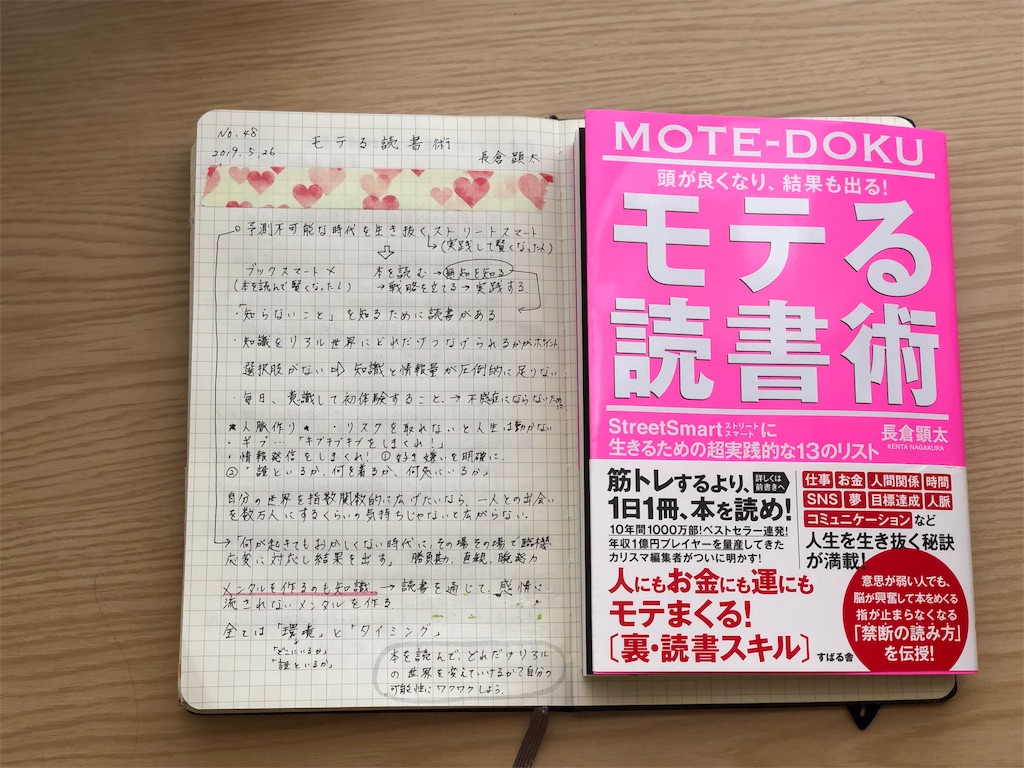 No.48
2019.5.26
モテる読書術
長倉顕太
予測不可能な時代を生き抜くストリートスマート
(実践して賢くなった人)
ブックスマート× 本を読む→無知を知る
(本を読んで賢くなった人) →戦略を立てる→実践する
・「知らないこと」を知るために読書がある
・知識をリアル世界にどれだけつなげられるかがポイント
選択肢がない⇒知識と情報量が圧倒的に足りない
・毎日、意識して初体験すること。→不感症にならないため
★人脈作り★ ・リスクを取れないと人生は動かない
・ギブ…「ギブギブギブをしまくれ!」
・情報発信をしまくれ! ①好き嫌いを明確に。
②「誰といるか、何を着るか、何処にいるか」
自分の世界を指数関数的に広げたいなら、一人との出会い
を数万人にするくらいの気持ちじゃないと広がらない。
→「何が起きてもおかしくない時代に、その場その場で臨機
応変に対応し結果を出す。 勝負勘、直観、瞬発力
メンタルを作るのも知識 → 読書を通じて、感情に
流されないメンタルを作る
全ては「環境」と「タイミング」
「どこにいるか」
「誰といるか」
本を読んで、どれだけリアル
の世界を変えていけるかで自分の
可能性にワクワクしよう。
MOTE-DOKU
頭が良くなり、結果も出る!
モテる
読書術
StreetSmartストリートスマートに
生きるための超実践的な13のリスト
長倉顕太
KENTA NAGAKURA
筋トレするより、
詳しくは前書きへ
1日1冊、本を読め!
10年間1000万部!ベストセラー連発!
年収1億円プレイヤーを量産してきた
カリスマ編集者がついに明かす!
仕事 お金 人間関係 時間
SNS 夢 目標達成 人脈
コミュニケーション など
人生を生き抜く秘訣
が満載!
人にもお金にも運にも
モテまくる!
〔裏・読書スキル〕
すばる舎
意思が弱い人でも、
脳が興奮して本をめくる
指が止まらなくなる
「禁断の読み方」
を伝授!